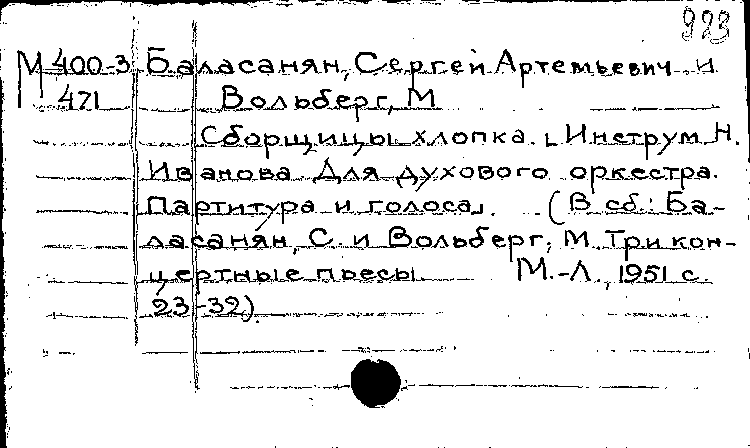 993
М 400-3 Баласанян, Сергей Артемьевич и
471 Вольберг, М
Сборщицы хлопка. [Инструм. Н.
Иванова Для духового оркестра.
Партитура и голоса]. (В сб.: Ба-
ласанян, С. и Вольберг, М. Три кон-
цертные пьесы. М.-Л., 1951 с.
23-32).